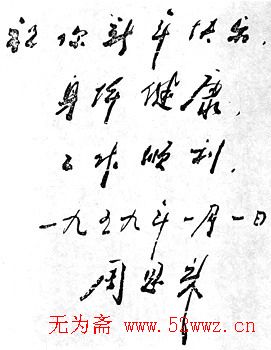 祝你新年快乐.
身体健康.
工作顺利.
一九五九年一月一日
周恩来
无为斋 www.52wwz.cn